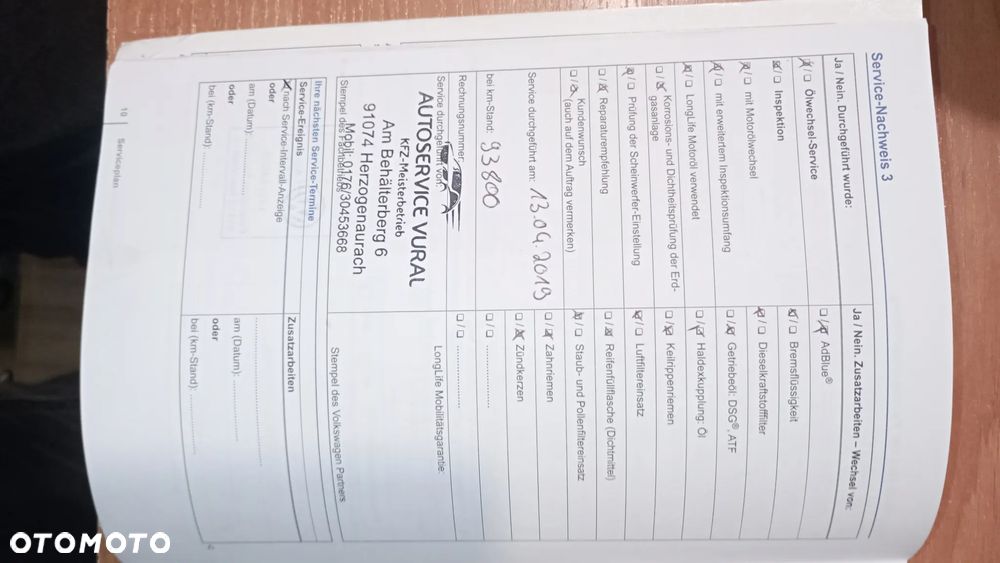 Service-Nachweis 3
Ja / Nein. Durchgeführt wurde:
Ölwechsel-Service
Inspektion
mit Motorölwechsel
mit erweitertem Inspektionsumfang
LongLife Motoröl verwendet
Korrosions- und Dichtheitsprüfung der Erd-
gasanlage
Prüfung der Scheinwerfer-Einstellung
Reparaturempfehlung
Kundenwunsch
(auch auf dem Auftrag vermerken)
Service durchgeführt am: 13.04.2019
bei km-Stand: 93800
Rechnungsnummer:
Service durchgeführt von:
AUTOSERVICE VURAL
KFZ-Meisterbetrieb
Am Behälterberg 6
91074 Herzogenaurach
Mobil: 0176/30453668
Stempel des Fachbetriebs
Ja / Nein. Zusatzarbeiten – Wechsel von:
AdBlue®
Bremsflüssigkeit
Dieselkraftstofffilter
Getriebeöl: DSG®, ATF
Haldexkupplung: Öl
Keilrippenriemen
Luftfiltereinsatz
Reifenfüllflasche (Dichtmittel)
Staub- und Pollenfiltereinsatz
Zahnriemen
Zündkerzen
LongLife Mobilitätsgarantie:
Stempel des Volkswagen Partners
Ihre nächsten Service-Termine
Service-Ereignis
nach Service-Intervall-Anzeige
oder
am (Datum):
oder
bei (km-Stand):
Zusatzarbeiten
am (Datum):
oder
bei (km-Stand):
10 Serviceplan
OTOMOTO